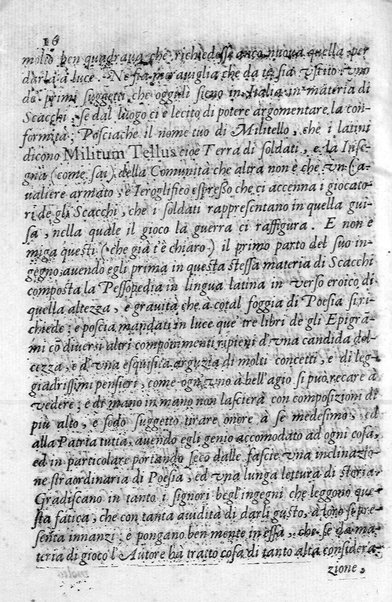 16
molto ben quadraua che richiedesse anco nuoua quella per
darli a luce. Ne fia marauiglia che da te sia vscito vno
de primi suggetti che oggidì sieno in Italia in materia di
Scacchi, se dal luogo ci è lecito di potere argomentare la con-
formità. Posciache il nome tuo di Militello, che i latini
dicono Militum Tellus cioè Terra di soldati, e la Inse-
gna (come sai) della Comunità che altra non è che vn Ca-
ualiere armato, è Ieroglifico espresso che ci accenna i giocato-
ri de gli Scacchi, che i soldati rappresentano in quella gui-
sa, nella quale il gioco la guerra ci raffigura. E non è
miga questi (che già t'è chiaro) il primo parto del suo in-
gegno, auendo egli prima in questa stessa materia di Scacchi
composta la Pessopedia in lingua latina in verso eroico di
quella altezza, e grauità che a cotal foggia di Poesia si ri-
chiede; e poscia mandati in luce que tre libri de gli Epigra-
mi cō diuersi altri componimenti ripieni d'vna candida dol-
cezza, e d'vna esquisita arguzia di molti concetti, e di leg-
giadrissimi pensieri, come ogn'vno a bell'agio si può recare a
vedere; e di mano in mano non lascierà con composizioni di
più alto, e sodo suggetto tirare onore a se medesimo, ed
alla Patria tutta, auendo egli genio accomodato ad ogni cosa,
ed in particolare portando seco dalle fascie vna inclinazio-
ne straordinaria di Poesia, ed vna lunga lettura di storia.
Gradiscano in tanto i signori begl'ingegni che leggono que-
sta fatica, che con tanta auidità di darli gusto, a loro se pre-
senta innanzi; e pongano ben mente in essa, che se da ma-
teria di gioco l'Autore ha tratto cosa di tanto alta considera-
zione,